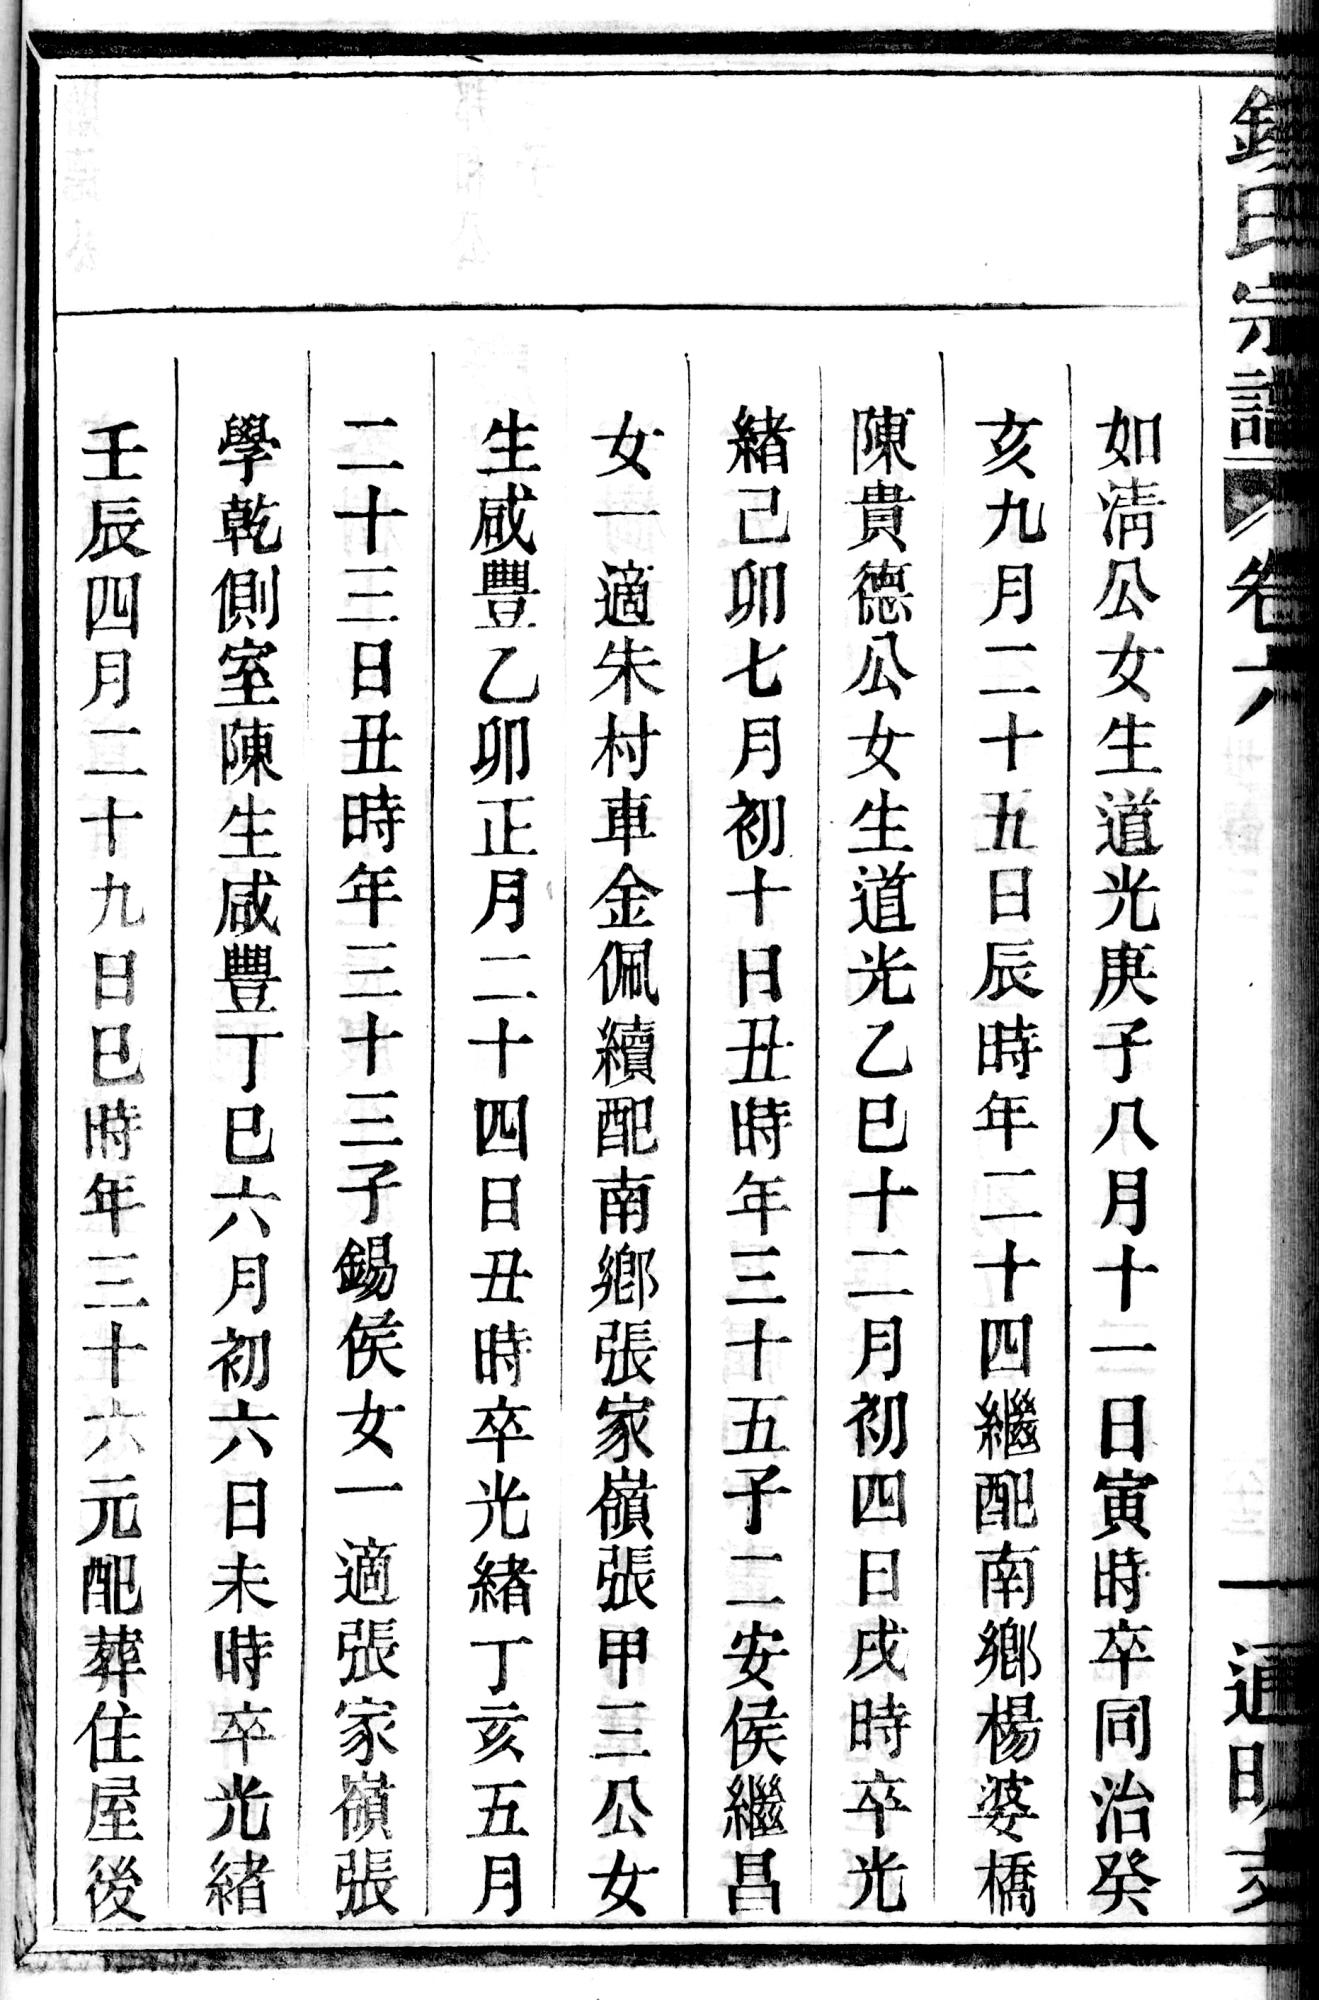 氏宗譜 卷六 一 通明支
如凊公女生道光庚子八月十二日寅時卒同治癸
亥九月二十五日辰時年二十四繼配南鄉楊婆橋
陳貴德公女生道光乙巳十二月初四日戌時卒光
緒己卯七月初十日丑時年三十五子二安侯繼昌
女一適朱村車金佩續配南鄉張家嶺張甲三公女
生咸豐乙卯正月二十四日丑時卒光緒丁亥五月
二十三日丑時年三十三子錫侯女一適張家嶺張
學乾側室陳生咸豐丁巳六月初六日未時卒光緒
壬辰四月二十九日巳時年三十六元配葬住屋後